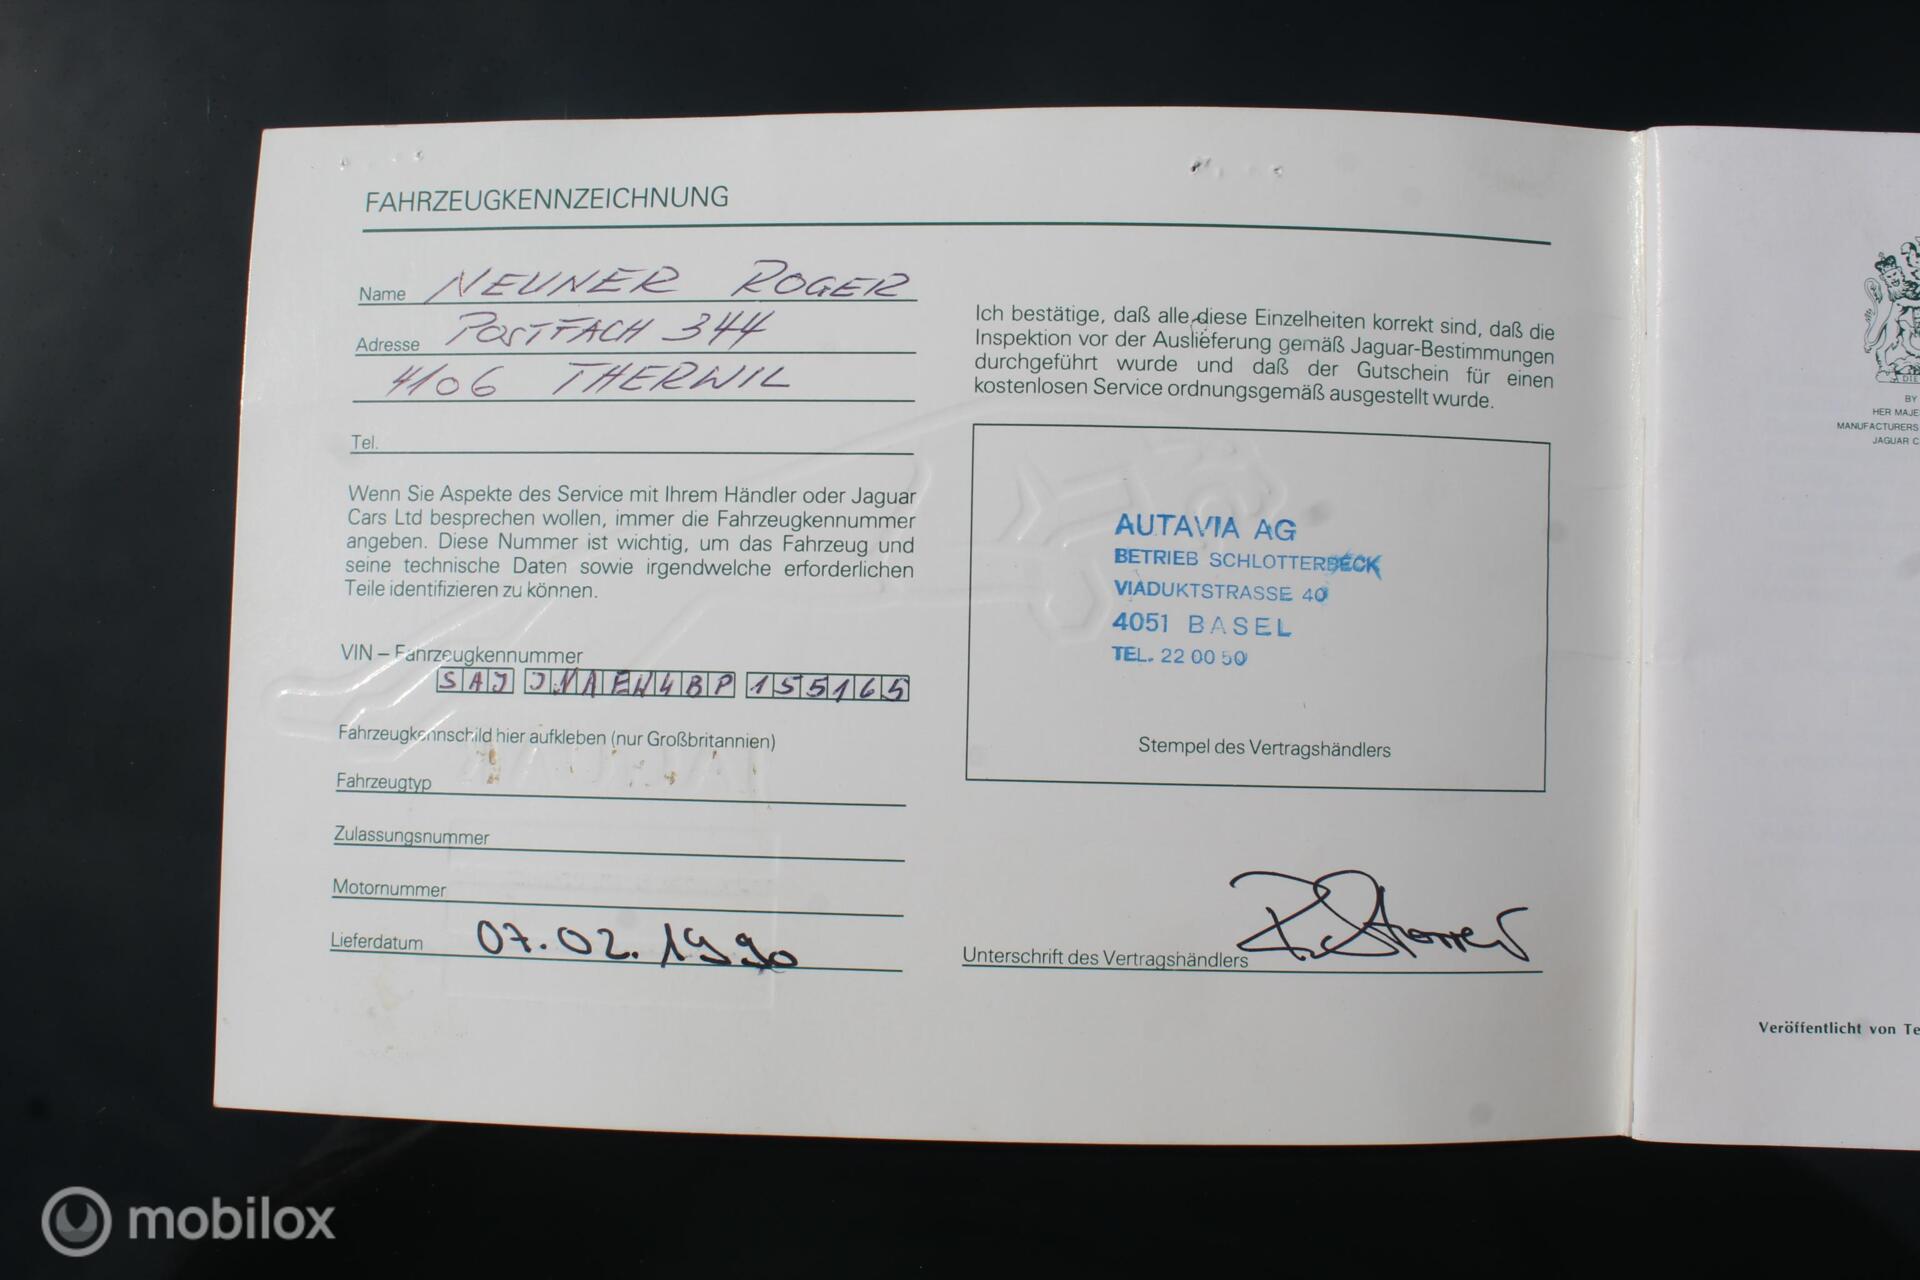 FAHRZEUGKENNZEICHNUNG
Name NEUNER ROGER
Adresse POSTFACH 344
4106 THERWIL
Tel.
Wenn Sie Aspekte des Service mit Ihrem Händler oder Jaguar
Cars Ltd besprechen wollen, immer die Fahrzeugkennummer
angeben. Diese Nummer ist wichtig, um das Fahrzeug und
seine technische Daten sowie irgendwelche erforderlichen
Teile identifizieren zu können.
VIN – Fahrzeugkennummer
SAJ JNAEW4BP 155165
Fahrzeugkennschild hier aufkleben (nur Großbritannien)
Fahrzeugtyp
Zulassungsnummer
Motornummer
Lieferdatum 07.02.1990
Ich bestätige, daß alle diese Einzelheiten korrekt sind, daß die
Inspektion vor der Auslieferung gemäß Jaguar-Bestimmungen
durchgeführt wurde und daß der Gutschein für einen
kostenlosen Service ordnungsgemäß ausgestellt wurde.
AUTAVIA AG
BETRIEB SCHLOTTERBECK
VIADUKTSTRASSE 40
4051 BASEL
TEL. 22 00 50
Stempel des Vertragshändlers
Unterschrift des Vertragshändlers
BY
HER MAJE
MANUFACTURERS
JAGUAR C
Veröffentlicht von Te
mobilox